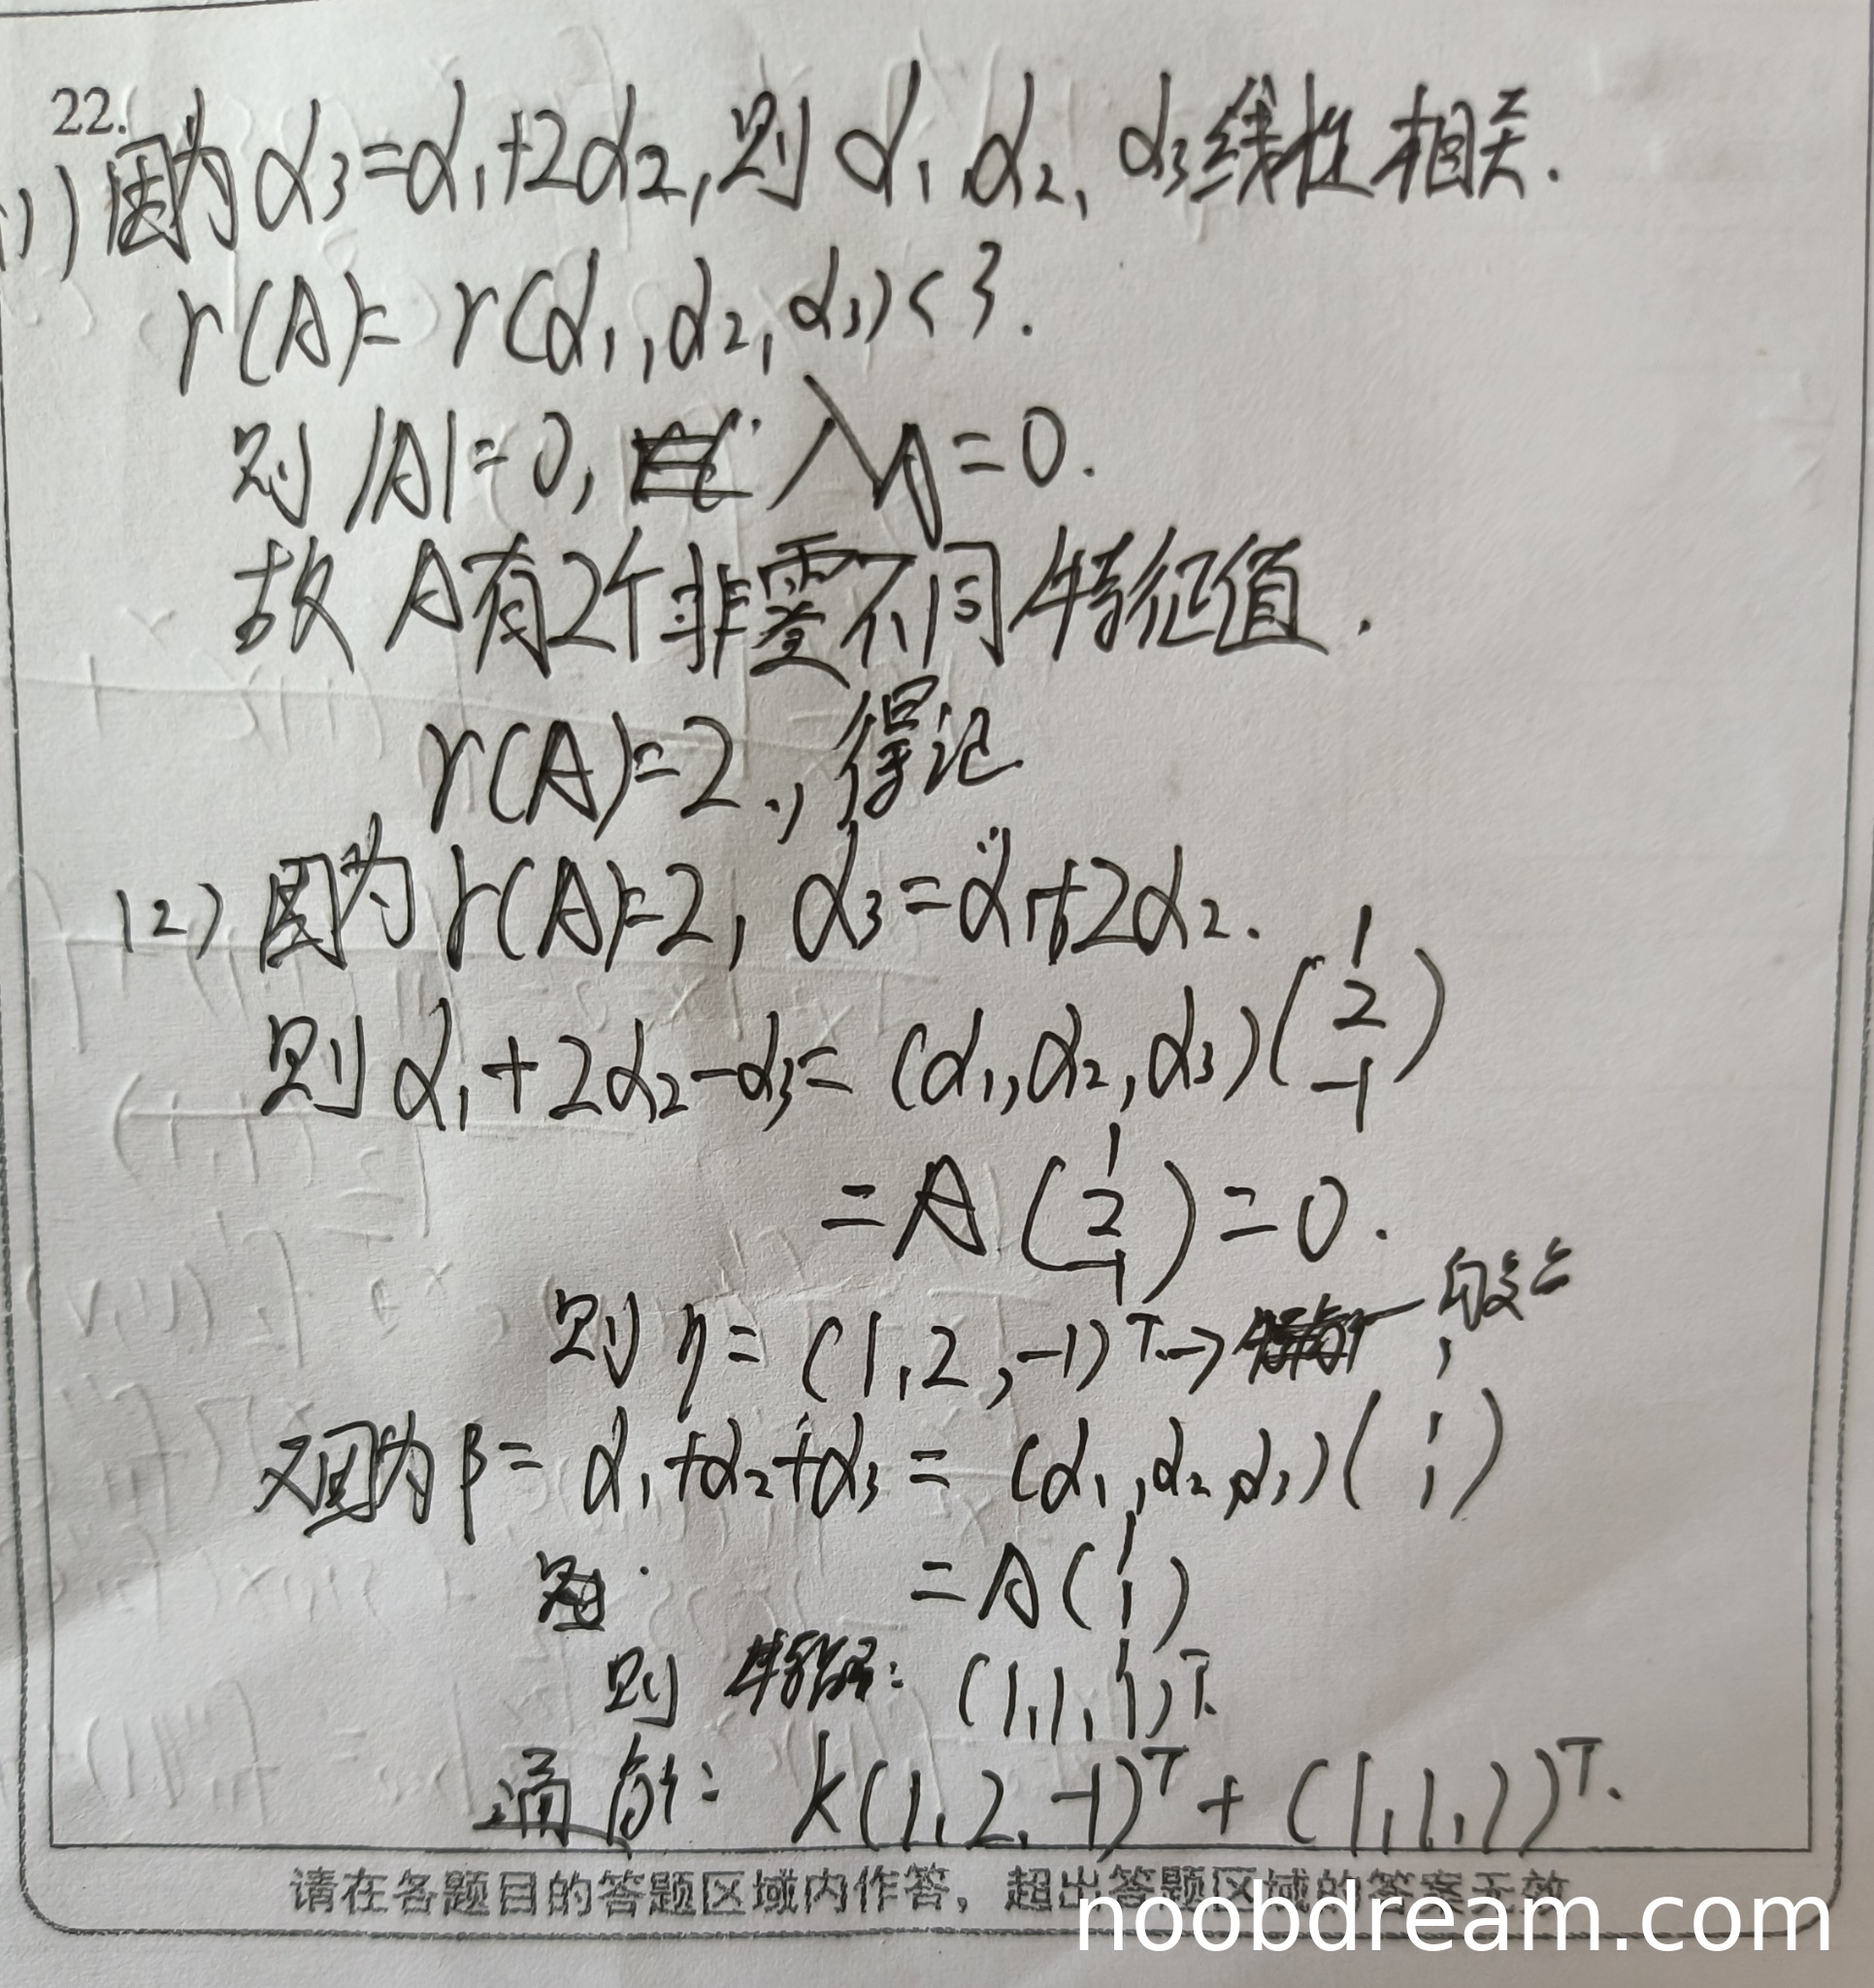 22.
(1) 因为 α₃=α₁+2α₂,则 α₁,α₂,α₃线性相关.
r(A)= r(α₁,α₂,α₃)<3.
则 |A|=0, λ =0.
故 A有2个非零不同特征值.
r(A)=2., 得记
(2) 因为 r(A)=2, α₃=α₁+2α₂.
则 α₁+2α₂-α₃= (α₁,α₂,α₃)(1 2 -1)
= A (1 2 -1) = 0.
则 η= (1,2,-1)ᵀ.→
又因为 β= α₁+α₂+α₃ = (α₁,α₂,α₃)(1 1 1)
= A(1 1 1)
则 特解: (1,1,1)ᵀ.
通解: k(1,2,-1)ᵀ + (1,1,1)ᵀ.
请在各题目的答题区域内作答，超出答题区域的答案无效
noobdream.com